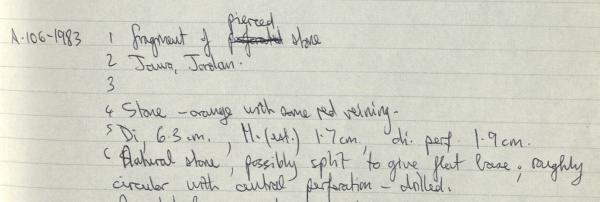 pierced
A.106-1983 1 fragment of perforated stone
2 Jawa, Jordan.
3
4 Stone - orange with some red veining.
5 Di 6.3 cm, H. (est.) 1.7 cm, di. perf. 1.9 cm.
6 Natural stone, possibly split to give flat base; roughly
circular with central perforation - drilled.